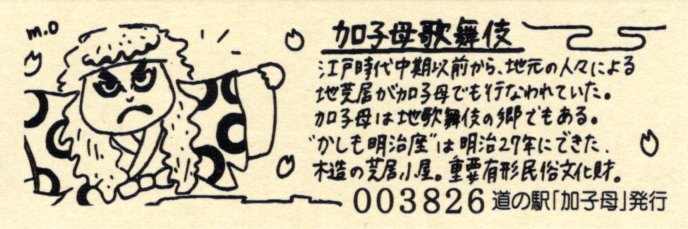 m.o
加子母歌舞伎
江戸時代中期以前から、地元の人々による
地芝居が加子母でも行なわれていた。
加子母は地歌舞伎の郷でもある。
"かしも明治座"は明治27年にできた、
木造の芝居小屋。重要有形民俗文化財。
003826 道の駅「加子母」発行